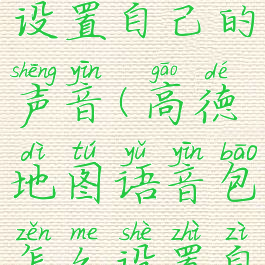 设置自己的
shēng yīn gāo dé
声音(高德
dì tú yǔ yīn bāo
地图语音包
zěn me shè zhì zì
怎么设置自